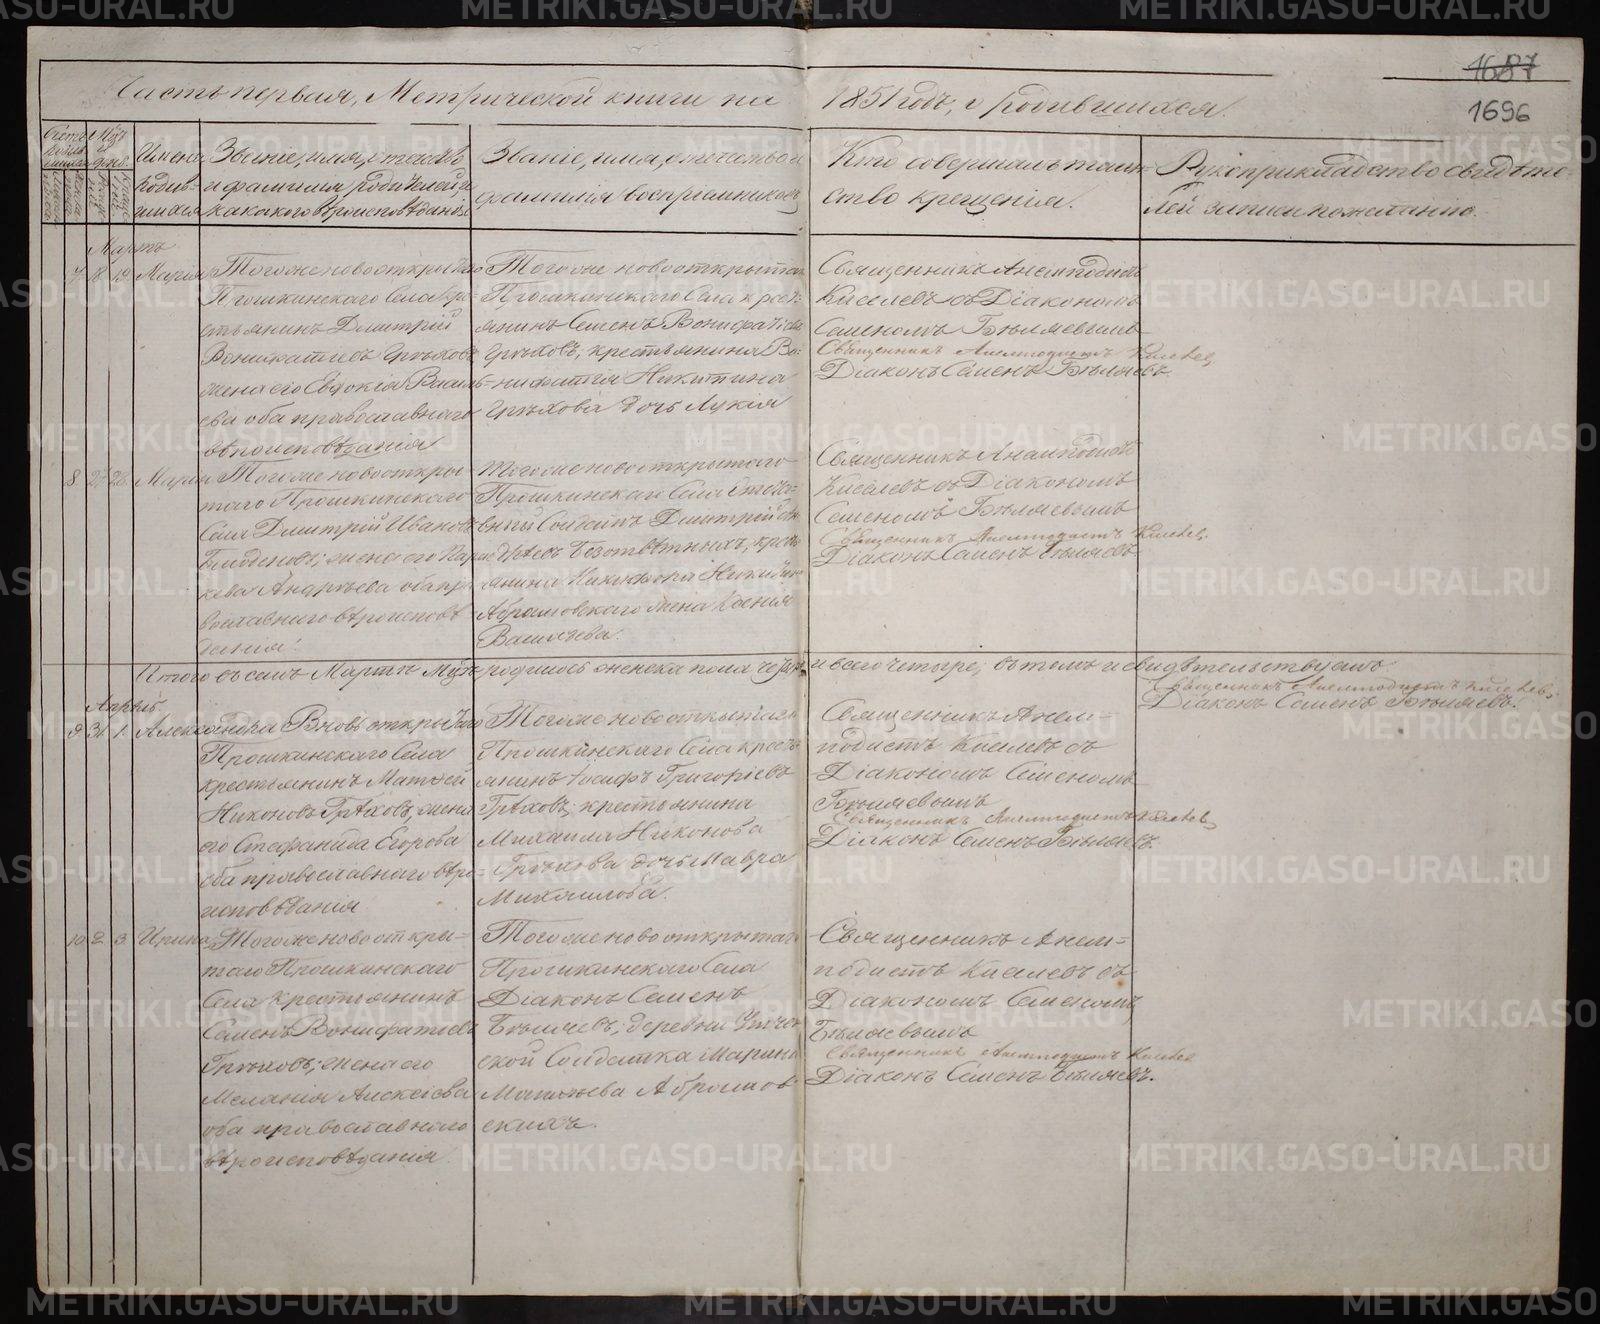 1687
1696
Часть первая, Метрической книги на 1851 годъ, о родившихся.
Имена родив-шихся
Званіе, имя, отчество и фамилія родителей, и какого вѣроисповѣданія
Званіе, имя, отчество и фамилія воспріемниковъ
Кто совершалъ таин-ство крещенія.
Рукоприкладство свидѣте-лей записи по желанію.
Мартъ
7 18 19 Марія
Того же новооткрытаго
Прошкинскаго Села кре-
стьянинъ Дмитрій
Вонифатіевъ Грѣховъ
жена его Евдокія Василь-
ева оба православнаго
вѣроисповѣданія
Того же новооткрытаго
Прошкинскаго Села кресть-
янинъ Семенъ Вонифатіевъ
Грѣховъ, крестьянина Во-
нифатія Никитина
Грѣхова дочь Лукія
Священникъ Анемподистъ
Киселевъ съ Діакономъ
Семеномъ Бѣляевымъ
Священникъ Анемподистъ Киселевъ,
Діаконъ Семенъ Бѣляевъ
8 27 28 Марія
Того же новооткры-
таго Прошкинскаго
Села Дмитрій Ивановъ
жена его
Андрѣева оба пра-
вославнаго вѣроисповѣ-
данія.
Того же новооткрытаго
Прошкинскаго Села
Солдатъ Дмитрій
Безотвѣтныхъ, кресть-
янина Никифора Никитина
Абрамовскаго жена Ксенія
Васильева.
Священникъ Анемподистъ
Киселевъ съ Діакономъ
Семеномъ Бѣляевымъ
Священникъ Анемподистъ Киселевъ,
Діаконъ Семенъ Бѣляевъ
Итого въ семъ Мартѣ М-цѣ родилось женска пола четыре, и всего четыре, въ томъ и свидѣтельствуемъ
Священникъ Анемподистъ Киселевъ,
Діаконъ Семенъ Бѣляевъ.
Апрѣль
9 31 1. Александра
Вновь открытаго
Прошкинскаго Села
крестьянинъ Матѳей
Никоновъ Грѣховъ, жена
его Стефанида Егорова
оба православнаго вѣро-
исповѣданія
Того же новооткрытаго
Прошкинскаго Села кресть-
янинъ Іосифъ Григоріевъ
Грѣховъ, крестьянина
Михаила Никонова
Грѣхова дочь Мавра
Михаилова.
Священникъ Анем-
подистъ Киселевъ съ
Діакономъ Семеномъ
Бѣляевымъ
Священникъ Анемподистъ Киселевъ,
Діаконъ Семенъ Бѣляевъ.
10 2 3. Ирина
Того же новооткры-
таго Прошкинскаго
Села крестьянинъ
Семенъ Вонифатіевъ
Грѣховъ; жена его
Меланія Алексіева
оба православнаго
вѣроисповѣданія
Того же новооткрытаго
Прошкинскаго Села
Діаконъ Семенъ
Бѣляевъ, деревни
Солдатка Марина
Матѳѣева Абрамов-
скихъ.
Священникъ Анем-
подистъ Киселевъ съ
Діакономъ Семеномъ
Бѣляевымъ
Священникъ Анемподистъ Киселевъ
Діаконъ Семенъ Бѣляевъ.
METRIKI.GASO-URAL.RU